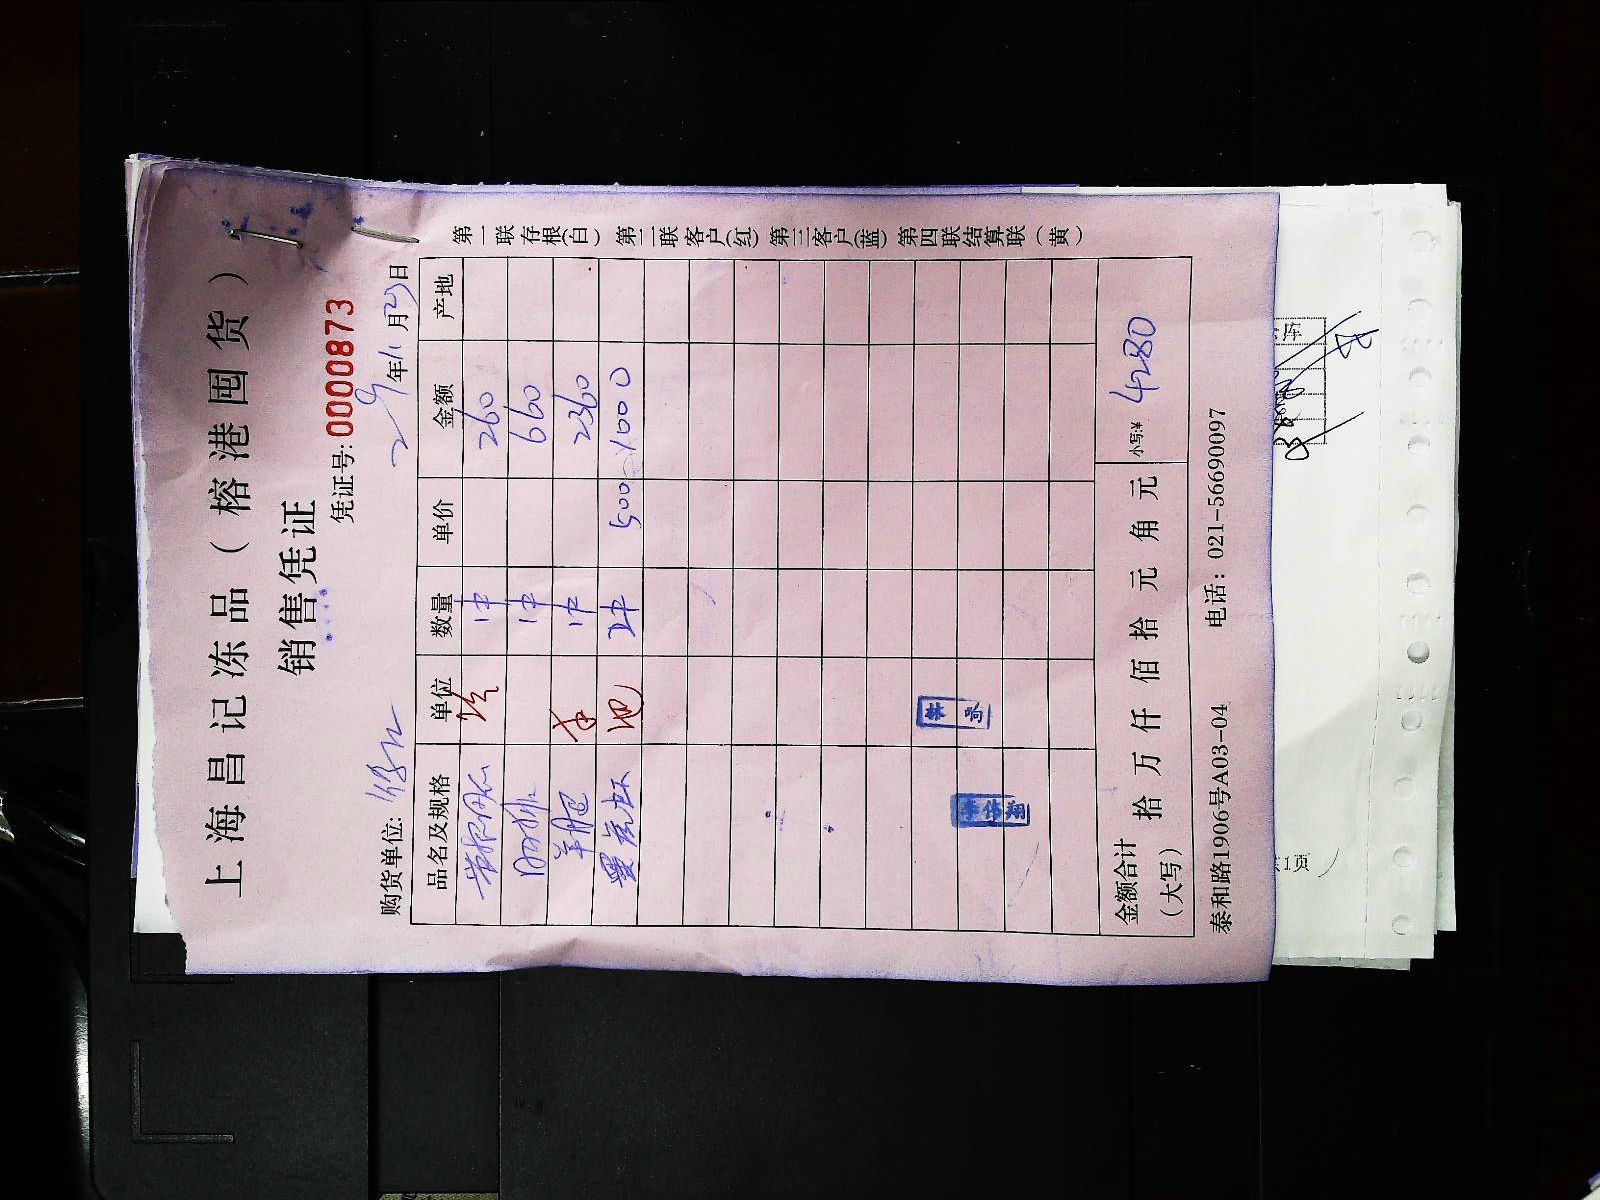 上海昌记冻品（榕港囤货）
销售凭证
凭证号：0000873
年11月23日
购货单位：
品名及规格 单位 数量 单价 金额 产地
1件 260
1件 660
羊肥 1件 2360
黑虎虾 2件 500 1000
金额合计（大写） 拾 万 仟 佰 拾 元 角 元 小写:¥ 4280
泰和路1906号A03-04 电话：021-56690097
第一联存根（白）第二联客户（红）第三客户（蓝）第四联结算联（黄）
李伟翔
库
1页